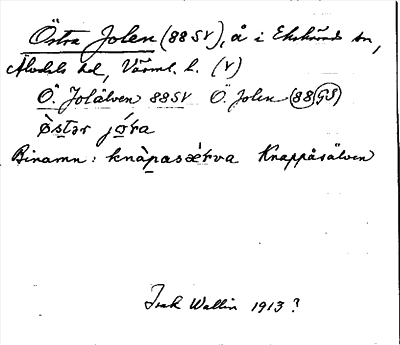 Östra Jolen (88 SV), å i Ekshärads sn,
Älvdals hd, Värml. l. (V)
Ö. Jolälven 88 SV Ö. Jolen (88 GS)
ø̀stər jó̱ra
Binamn: knàpasǽrva Knappåsälven
Isak Wallin 1913?